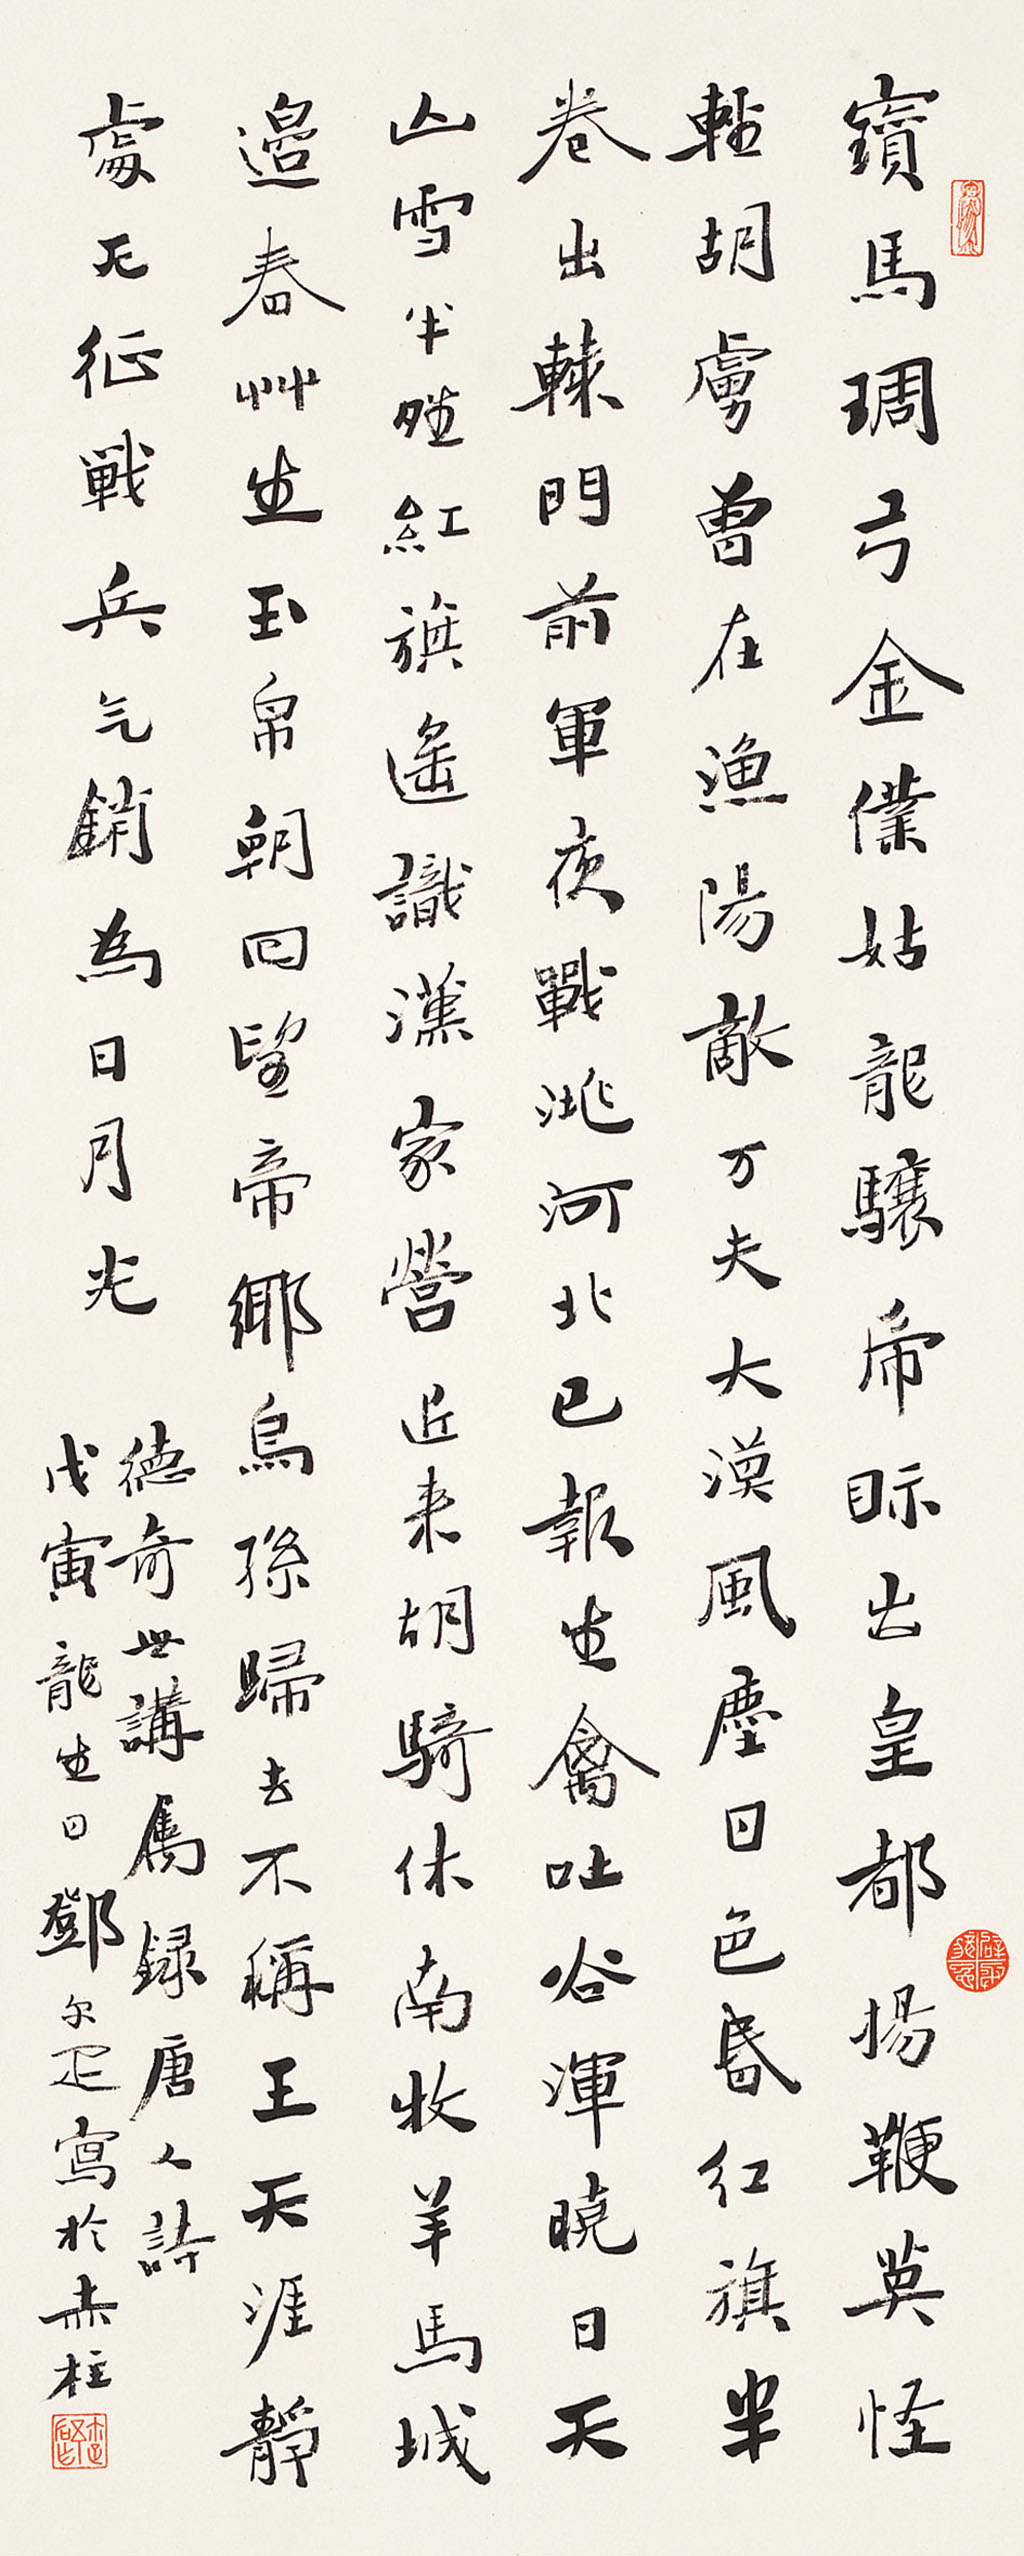 寶馬琱弓金僕姑龍驤虎眎出皇都揚鞭莫怪
輕胡虜曾在漁陽敵万夫大漠風塵日色昏紅旗半
卷出轅門前軍夜戰洮河北已報生禽吐谷渾曉日天
山雪半晴紅旗遙識漢家營近来胡騎休南牧羊馬城
邊春艸生玉帛朝回望帝鄉烏孫歸去不稱王天涯靜
處无征戰兵气銷為日月光
德奇世講属録唐人詩
戊寅龍生日鄧尔疋寫於赤柱